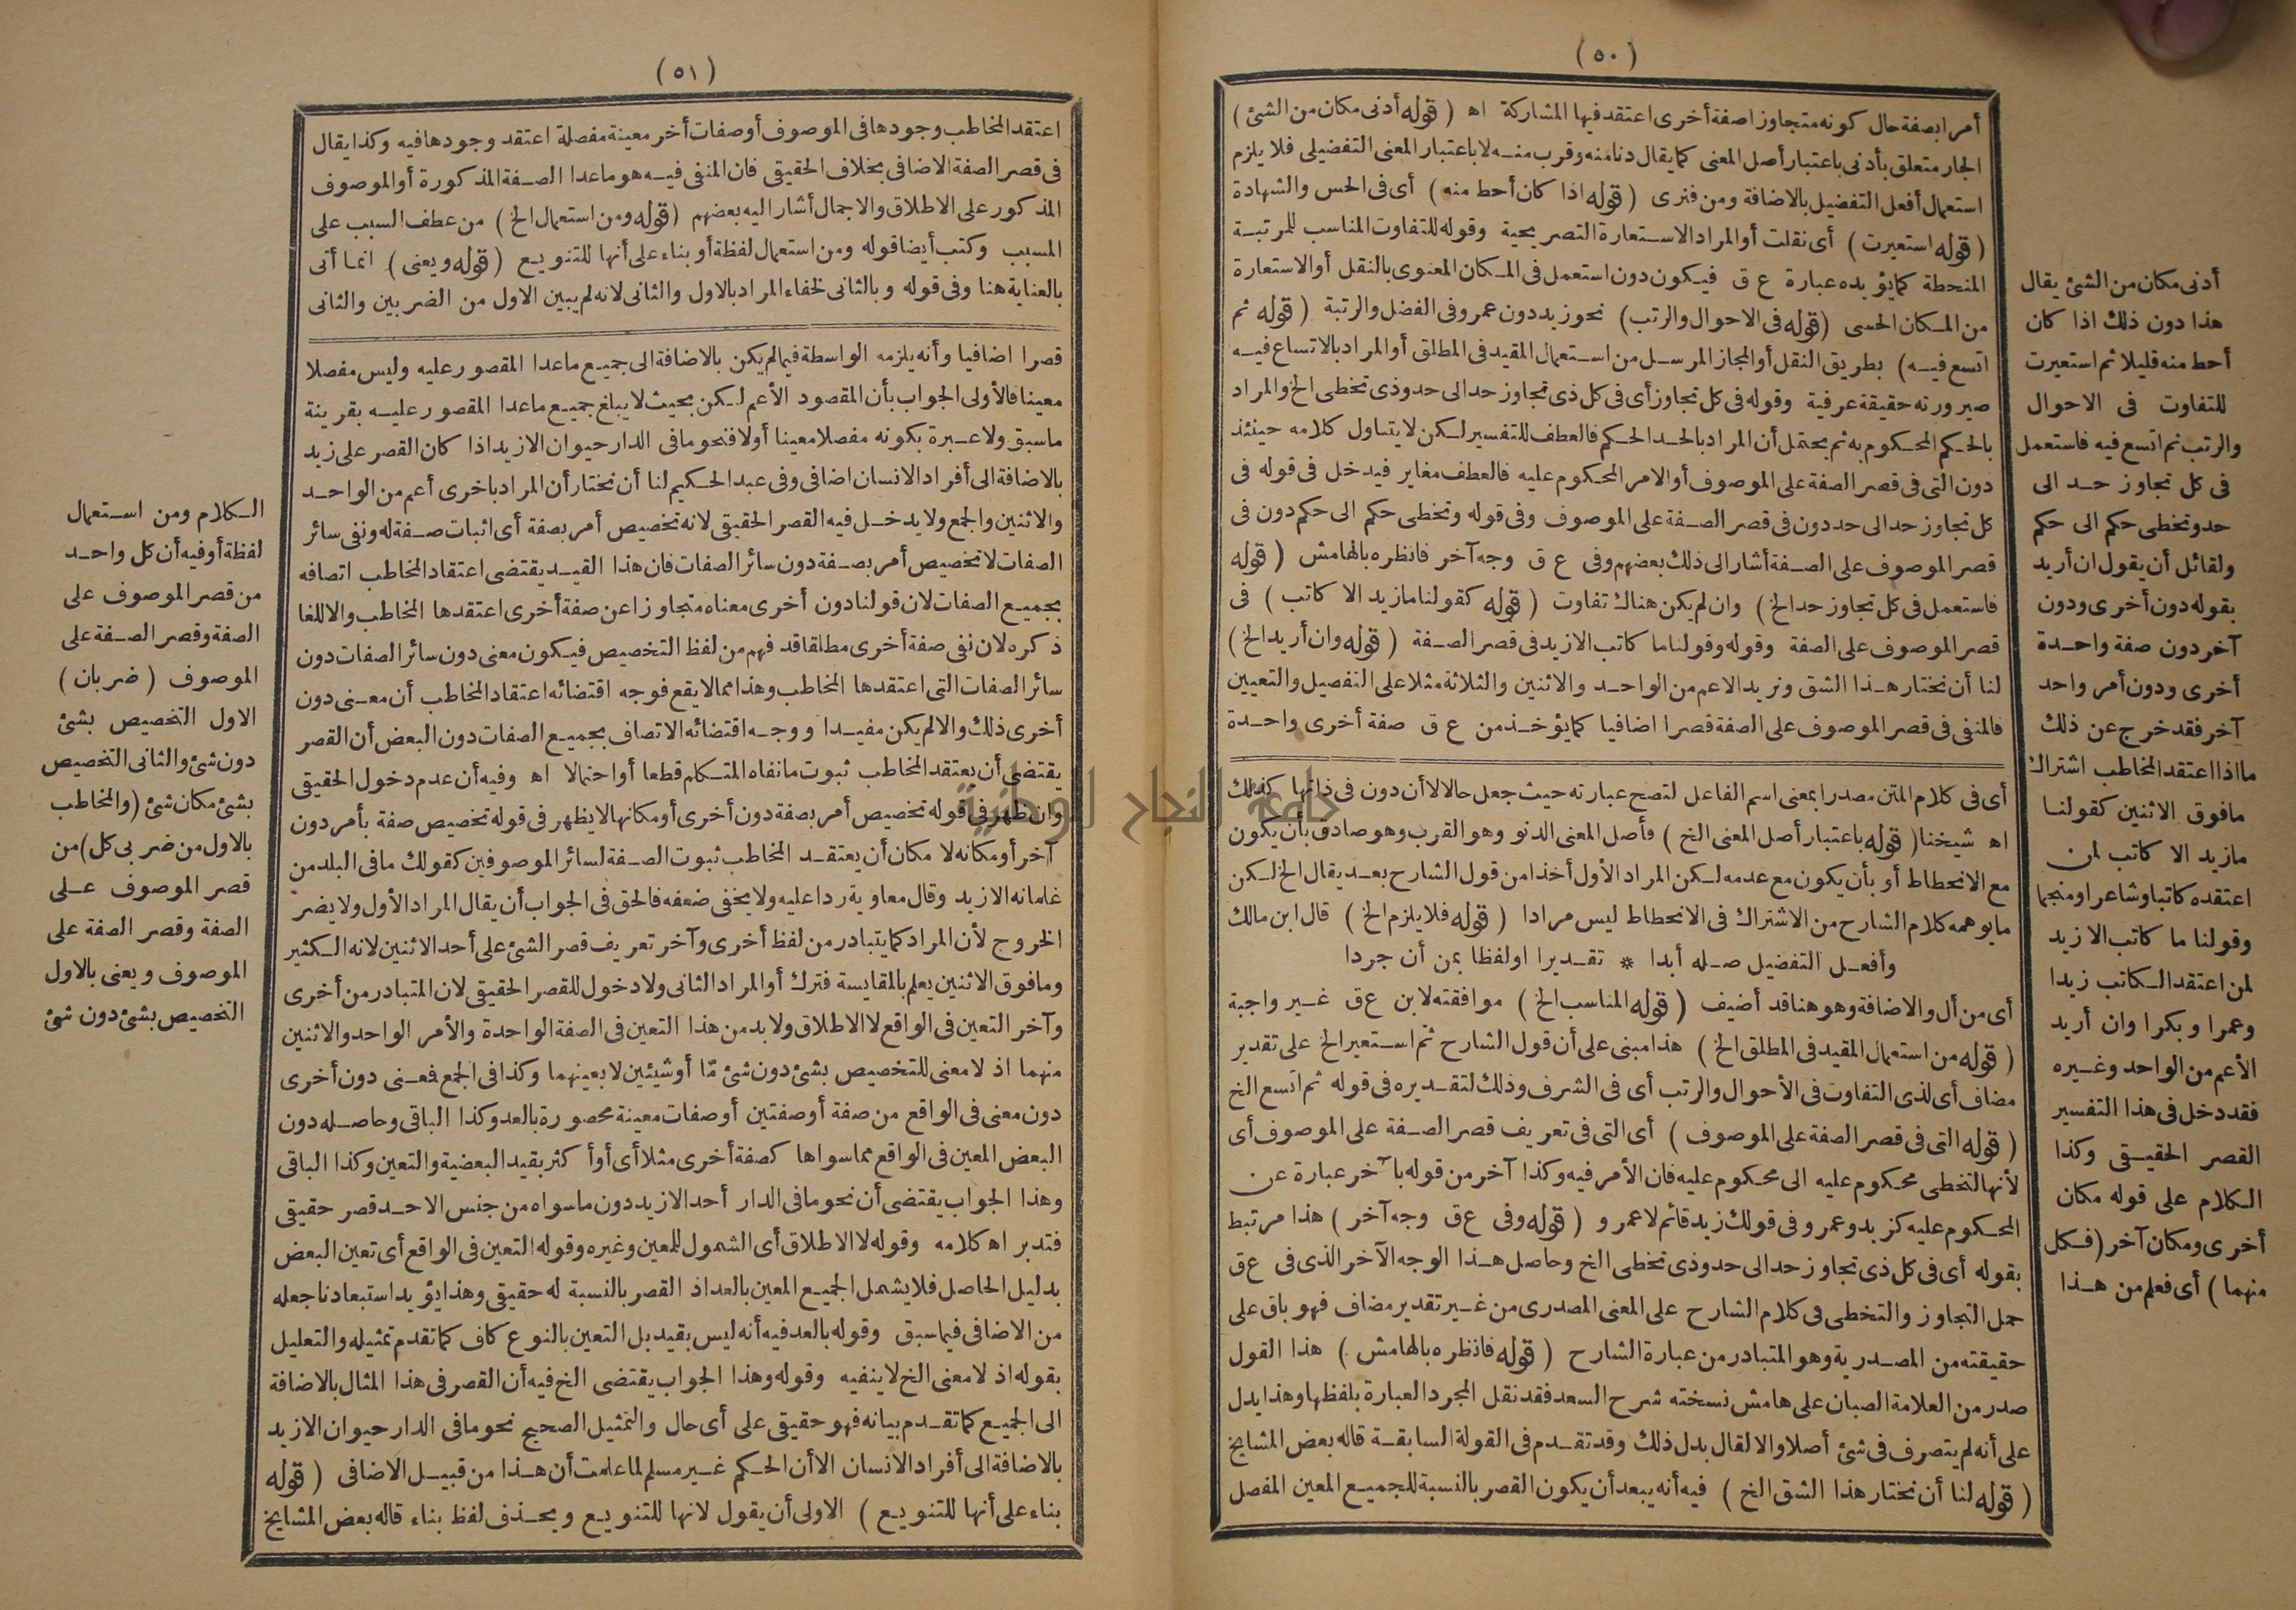 (٥٠)
أمرا بصفة حال كونه متجاوزا صفة أخرى اعتقد فيها المشاركة اه (قوله أدنى مكان من الشئ)
الجار متعلق بأدنى باعتبار أصل المعنى كما يقال دنا منه وقرب منه لا باعتبار المعنى التفضيلى فلا يلزم
استعمال أفعل التفضيل بالاضافة ومن فنرى (قوله اذا كان أحط منه) أى فى الحس والشهادة
(قوله استعيرت) أى نقلت أو المراد الاستعارة التصريحية وقوله للتفاوت المناسب للمرتبة
المنحطة كما يؤيده عبارة ع ق فيكون دون استعمل فى المكان المعنوى بالنقل أو الاستعارة
من المكان الحسى (قوله فى الاحوال والرتب) نحو زيد دون عمرو فى الفضل والرتبة (قوله ثم
اتسع فيه) بطريق النقل أو المجاز المرسل من استعمال المقيد فى المطلق أو المراد بالاتساع فيه
صيرورته حقيقة عرفية وقوله فى كل تجاوز أى فى كل ذى تجاوز حد الى حد وذى تخطى الخ والمراد
بالحكم المحكوم به ثم يحتمل أن المراد بالحد الحكم فالعطف للتفسير لكن لا يتناول كلامه حينئذ
دون التى فى قصر الصفة على الموصوف أو الامر المحكوم عليه فالعطف مغاير فيدخل فى قوله فى
كل تجاوز حد الى حد دون فى قصر الصفة على الموصوف وفى قوله وتخطى حكم الى حكم دون فى
قصر الموصوف على الصفة أشار الى ذلك بعضهم وفى ع ق وجه آخر فانظره بالهامش (قوله
فاستعمل فى كل تجاوز حد الخ) وان لم يكن هناك تفاوت (قوله كقولنا ما زيد الا كاتب) فى
قصر الموصوف على الصفة وقوله وقولنا ما كاتب الا زيد فى قصر الصفة (قوله وان أريد الخ)
لنا أن نختار هذا الشق ونريد الاعم من الواحد والاثنين والثلاثة مثلا على التفصيل والتعيين
فالمنفى فى قصر الموصوف على الصفة قصرا اضافيا كما يؤخذ من ع ق صفة أخرى واحدة
أى فى كلام المتن مصدرا بمعنى اسم الفاعل لتصح عبارته حيث جعل حالا لا أن دون فى ذاتها كذلك
اه شيخنا (قوله باعتبار أصل المعنى الخ) فأصل المعنى الدنو وهو القرب وهو صادق بأن يكون
مع الانحطاط أو بأن يكون مع عدمه لكن المراد الأول أخذا من قول الشارح بعد يقال الخ لكن
ما يوهمه كلام الشارح من الاشتراك فى الانحطاط ليس مرادا (قوله فلا يلزم الخ) قال ابن مالك
وأفعل التفضيل صله أبدا * تقديرا او لفظا بمن أن جردا
أى من أل والاضافة وهو هنا قد أضيف (قوله المناسب الخ) موافقته لابن ع ق غير واجبة
(قوله من استعمال المقيد فى المطلق الخ) هذا مبنى على أن قول الشارح ثم استعير الخ على تقدير
مضاف أى لذى التفاوت فى الأحوال والرتب أى فى الشرف وذلك لتقديره فى قوله ثم اتسع الخ
(قوله التى فى قصر الصفة على الموصوف) أى التى فى تعريف قصر الصفة على الموصوف أى
لأنها لتخطى محكوم عليه الى محكوم عليه فان الأمر فيه وكذا آخر من قوله بآخر عبارة عن
المحكوم عليه كزيد وعمرو فى قولك زيد قائم لا عمرو (قوله وفى ع ق وجه آخر) هذا مرتبط
بقوله أى فى كل ذى تجاوز حد الى حد وذى تخطى الخ وحاصل هذا الوجه الآخر الذى فى ع ق
حمل التجاوز والتخطى فى كلام الشارح على المعنى المصدرى من غير تقدير مضاف فهو باق على
حقيقته من المصدرية وهو المتبادر من عبارة الشارح (قوله فانظره بالهامش) هذا القول
صدر من العلامة الصبان على هامش نسخته شرح السعد فقد نقل المجرد العبارة بلفظها وهذا يدل
على أنه لم يتصرف فى شئ أصلا والا لقال بدل ذلك وقد تقدم فى القولة السابقة قاله بعض المشايخ
(قوله لنا أن نختار هذا الشق الخ) فيه أنه يبعد أن يكون القصر بالنسبة للجميع المعين المفصل
أدنى مكان من الشئ يقال
هذا دون ذلك اذا كان
أحط منه قليلا ثم استعيرت
للتفاوت فى الاحوال
والرتب ثم اتسع فيه فاستعمل
فى كل تجاوز حد الى
حد وتخطى حكم الى حكم
ولقائل أن يقول ان أريد
بقوله دون أخرى ودون
آخر دون صفة واحدة
أخرى ودون أمر واحد
آخر فقد خرج عن ذلك
ما اذا اعتقد المخاطب اشتراك
مافوق الاثنين كقولنا
ما زيد الا كاتب لمن
اعتقده كاتبا وشاعرا ومنجما
وقولنا ما كاتب الا زيد
لمن اعتقد الكاتب زيدا
وعمرا وبكرا وان أريد
الأعم من الواحد وغيره
فقد دخل فى هذا التفسير
القصر الحقيقى وكذا
الكلام على قوله مكان
أخرى ومكان آخر (فكل
منهما) أى فعلم من هذا
(٥١)
اعتقد المخاطب وجودها فى الموصوف أو صفات أخر معينة مفصلة اعتقد وجودها فيه وكذا يقال
فى قصر الصفة الاضافى بخلاف الحقيقى فان المنفى فيه هو ما عدا الصفة المذكورة أو الموصوف
المذكور على الاطلاق والاجمال أشار اليه بعضهم (قوله ومن استعمال الخ) من عطف السبب على
المسبب وكتب أيضا قوله ومن استعمال لفظة أو بناء على أنها للتنويع (قوله ويعنى) انما أتى
بالعناية هنا وفى قوله وبالثانى لخفاء المراد بالاول والثانى لانه لم يبين الاول من الضربين والثانى
قصرا اضافيا وأنه يلزمه الواسطة فيما لم يكن بالاضافة الى جميع ما عدا المقصور عليه وليس مفصلا
معينا فالأولى الجواب بأن المقصود الأعم لكن بحيث لا يبلغ جميع ما عدا المقصور عليه بقرينة
ما سبق ولا عبرة بكونه مفصلا معينا أولا فنحو ما فى الدار حيوان الا زيد اذا كان القصر على زيد
بالاضافة الى أفراد الانسان اضافى وفى عبد الحكيم لنا أن نختار أن المراد باخرى أعم من الواحد
والاثنين والجمع ولا يدخل فيه القصر الحقيقى لانه تخصيص أمر بصفة أى اثبات صفة له ونفى سائر
الصفات لا تخصيص أمر بصفة دون سائر الصفات فان هذا القيد يقتضى اعتقاد المخاطب اتصافه
بجميع الصفات لان قولنا دون أخرى معناه متجاوزا عن صفة أخرى اعتقدها المخاطب والا للغا
ذكره لان نفى صفة أخرى مطلقا قد فهم من لفظ التخصيص فيكون معنى دون سائر الصفات دون
سائر الصفات التى اعتقدها المخاطب وهذا مما لا يقع فوجه اقتضائه اعتقاد المخاطب أن معنى دون
أخرى ذلك والا لم يكن مفيدا ووجه اقتضائه الاتصاف بجميع الصفات دون البعض أن القصر
يقتضى أن يعتقد المخاطب ثبوت ما نفاه المتكلم قطعا أو احتمالا اه وفيه أن عدم دخول الحقيقى
وان ظهر فى قوله تخصيص أمر بصفة دون أخرى أو مكانها لا يظهر فى قوله تخصيص صفة بأمر دون
آخر أو مكانه لا مكان أن يعتقد المخاطب ثبوت الصفة لسائر الموصوفين كقولك ما فى البلد من
غلمانه الا زيد وقال معاوية ردا عليه ولا يخفى ضعفه فالحق فى الجواب أن يقال المراد الأول ولا يضر
الخروج لأن المراد كما يتبادر من لفظ أخرى وآخر تعريف قصر الشئ على أحد الاثنين لانه الكثير
ومافوق الاثنين يعلم بالمقايسة فترك أو المراد الثانى ولا دخول للقصر الحقيقى لان المتبادر من أخرى
وآخر التعين فى الواقع لا الاطلاق ولا بد من هذا التعين فى الصفة الواحدة والأمر الواحد والاثنين
منهما اذ لا معنى للتخصيص بشئ دون شئ مّا أو شيئين لا بعينهما وكذا فى الجمع فمعنى دون أخرى
دون معنى فى الواقع من صفة أو صفتين أو صفات معينة محصورة بالعد وكذا الباقى وحاصله دون
البعض المعين فى الواقع مما سواها كصفة أخرى مثلا أى أو أكثر بقيد البعضية والتعين وكذا الباقى
وهذا الجواب يقتضى أن نحو ما فى الدار أحد الا زيد دون ما سواه من جنس الاحد قصر حقيقى
فتدبر اه كلامه وقوله لا الاطلاق أى الشمول للمعين وغيره وقوله التعين فى الواقع أى تعين البعض
بدليل الحاصل فلا يشمل الجميع المعين بالعداذ القصر بالنسبة له حقيقى وهذا يؤيد استبعادنا جعله
من الاضافى فيما سبق وقوله بالعد فيه أنه ليس بقيد بل التعين بالنوع كاف كما تقدم تمثيله والتعليل
بقوله اذ لا معنى الخ لا ينفيه وقوله وهذا الجواب يقتضى الخ فيه أن القصر فى هذا المثال بالاضافة
الى الجميع كما تقدم بيانه فهو حقيقى على أى حال والتمثيل الصحيح نحو ما فى الدار حيوان الا زيد
بالاضافة الى أفراد الانسان الا أن الحكم غير مسلم لما علمت أن هذا من قبيل الاضافى (قوله
بناء على أنها للتنويع) الاولى أن يقول لانها للتنويع ويحذف لفظ بناء قاله بعض المشايخ
الكلام ومن استعمال
لفظة أو فيه أن كل واحد
من قصر الموصوف على
الصفة وقصر الصفة على
الموصوف (ضربان)
الاول التخصيص بشئ
دون شئ والثانى التخصيص
بشئ مكان شئ (والمخاطب
بالاول من ضربى كل) من
قصر الموصوف على
الصفة وقصر الصفة على
الموصوف ويعنى بالاول
التخصيص بشئ دون شئ
جامعة النجاح الوطنية